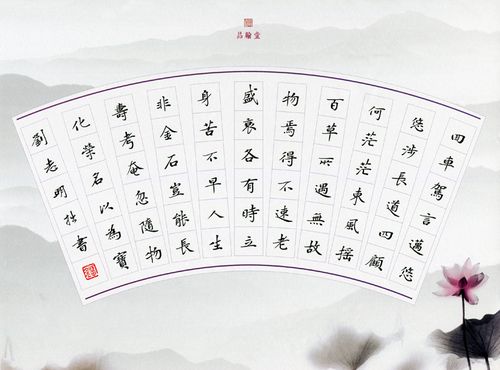 品翰堂
四車駕言邁悠
悠涉長道四顧
何茫茫東風搖
百草所遇無故
物焉得不速老
盛衰各有時立
身苦不早人生
非金石豈能長
壽考奄忽隨物
化榮名以為寶
劉志明拙書